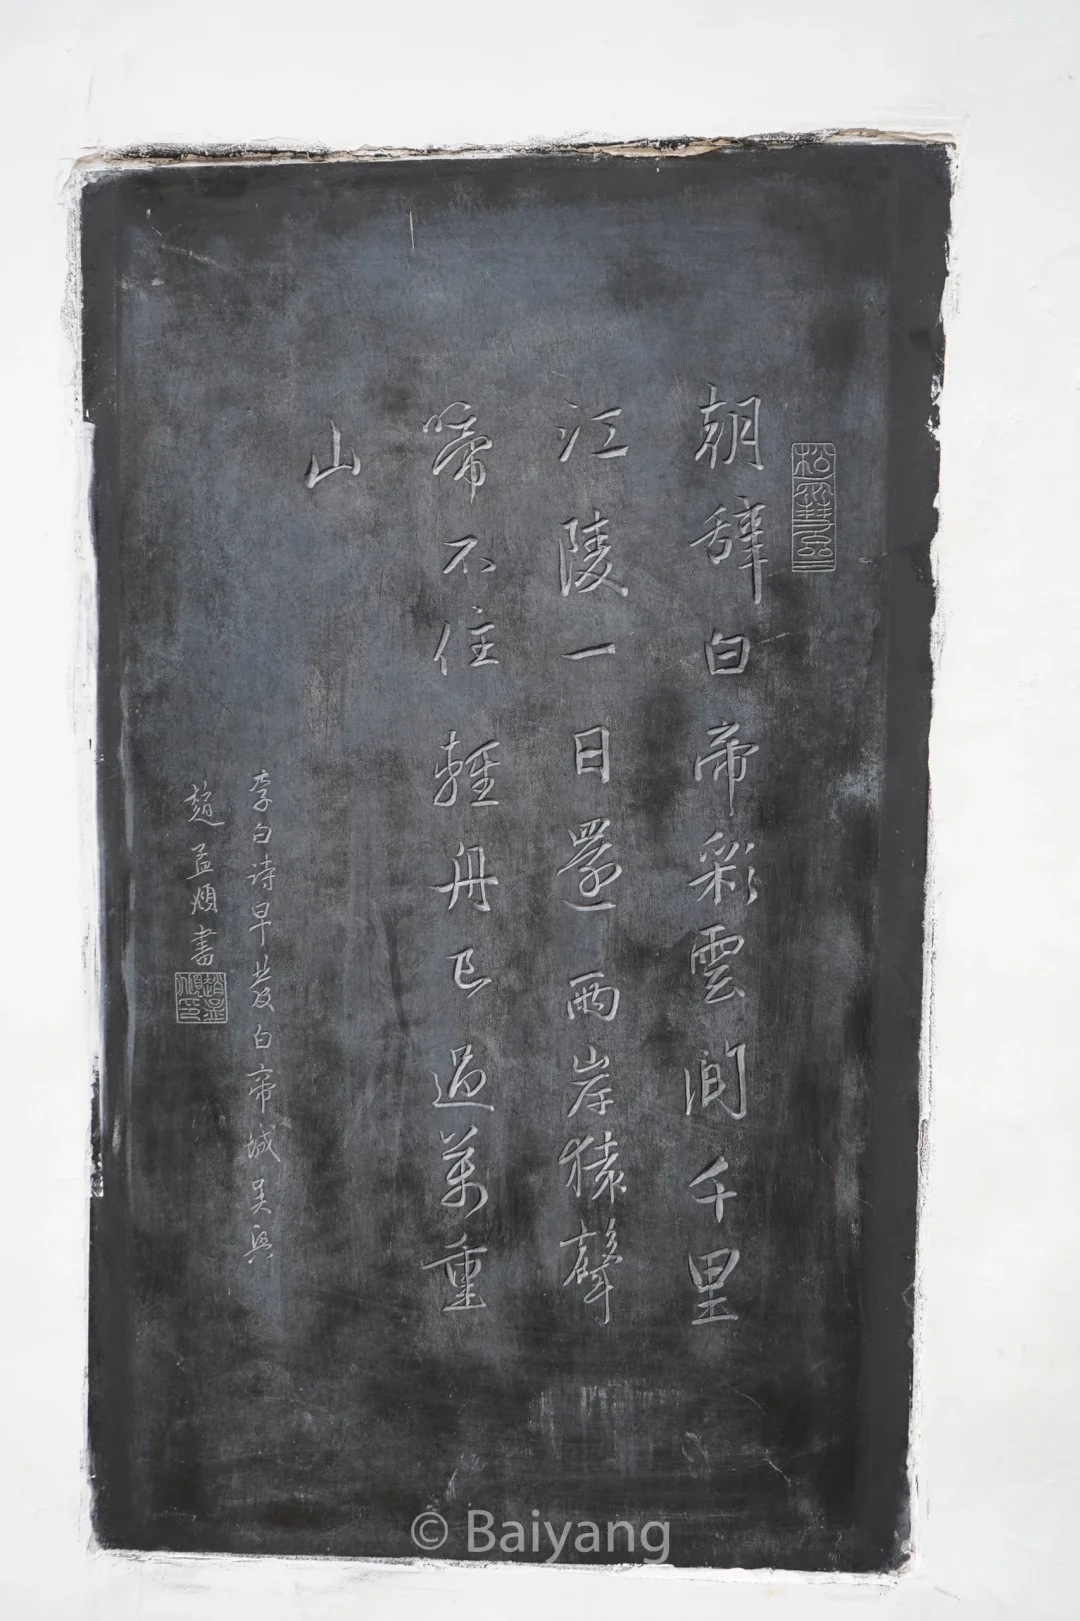 朝辭白帝彩雲間千里
江陵一日還兩岸猿聲
啼不住輕舟已過萬重
山
李白诗早发白帝城吴興
趙孟頫書
趙孟頫印
© Baiyang